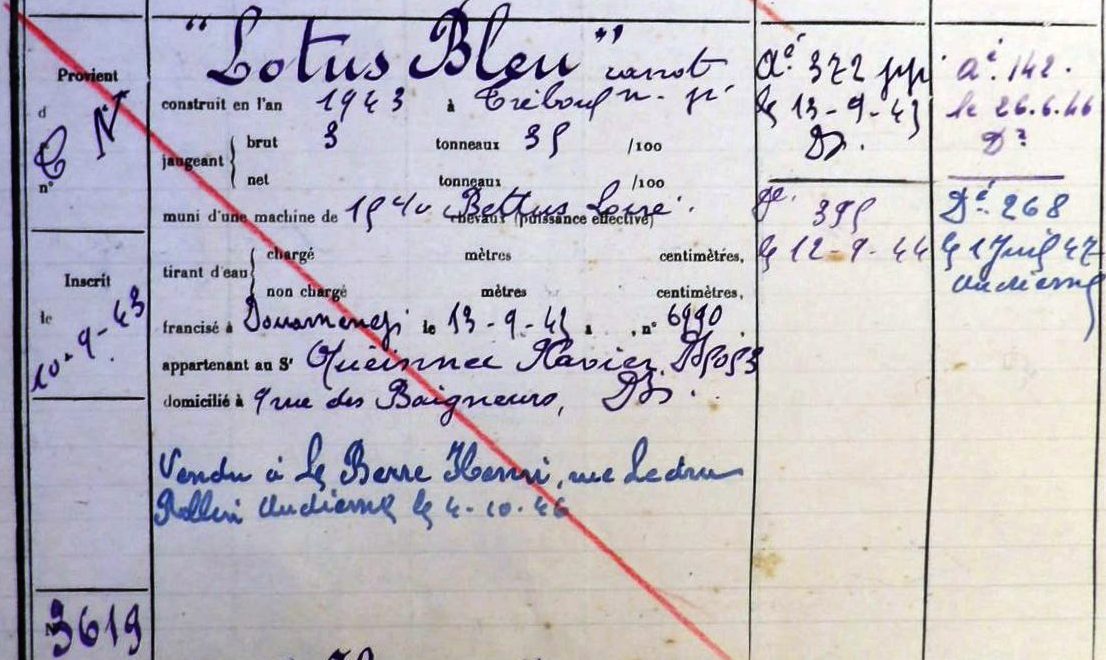 Provient
d
C N
n°
Inscrit
le
10-9-43
N° 3619
"Lotus Bleu" canot
construit en l'an 1943 à Tréboul n. p.
jaugeant { brut 3 tonneaux 35 /100
net tonneaux /100
muni d'une machine de chevaux (puissance effective)
tirant d'eau { chargé mètres centimètres,
non chargé mètres centimètres,
francisé à Douarnenez le 13-9-43 à , n° 6990 .
appartenant au Sr Xavier,
domicilié à 9 rue des Baigneurs, Dz.
Vendu à Le Berre Henri, rue Ledru
Rollin Audierne le 4-10-46
Aé 372 pp
le 13-9-43
Dz.
Dé. 395
le 12-9-44
Aé. 142.
le 26.6.46
Dz
Dé. 268
le 1 Juil 47
Audierne